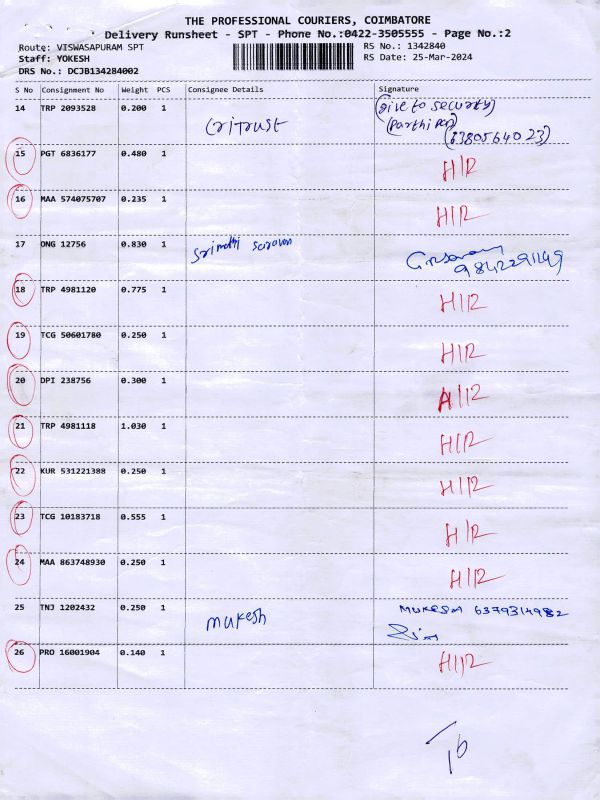 THE PROFESSIONAL COURIERS, COIMBATORE
Delivery Runsheet - SPT - Phone No.:0422-3505555 - Page No.:2
Route: VISWASAPURAM SPT RS No.: 1342840
Staff: YOKESH RS Date: 25-Mar-2024
DRS No.: DCJB134284002
S No Consignment No Weight PCS Consignee Details Signature
14 TRP 2093528 0.200 1 (Give to security)
(Parthipan)
(6380564023)
15 PGT 6836177 0.480 1 H/R
16 MAA 574075707 0.235 1 H/R
17 ONG 12756 0.830 1 Srimathi Saravan
9842291149
18 TRP 4981120 0.775 1 H/R
19 TCG 50601780 0.250 1 H/R
20 DPI 238756 0.300 1 H/R
21 TRP 4981118 1.030 1 H/R
22 KUR 531221388 0.250 1 H/R
23 TCG 10183718 0.555 1 H/R
24 MAA 863748930 0.250 1 H/R
25 TNJ 1202432 0.250 1 mukesh MUKESH 6379314982
26 PRO 16001904 0.140 1 H/R